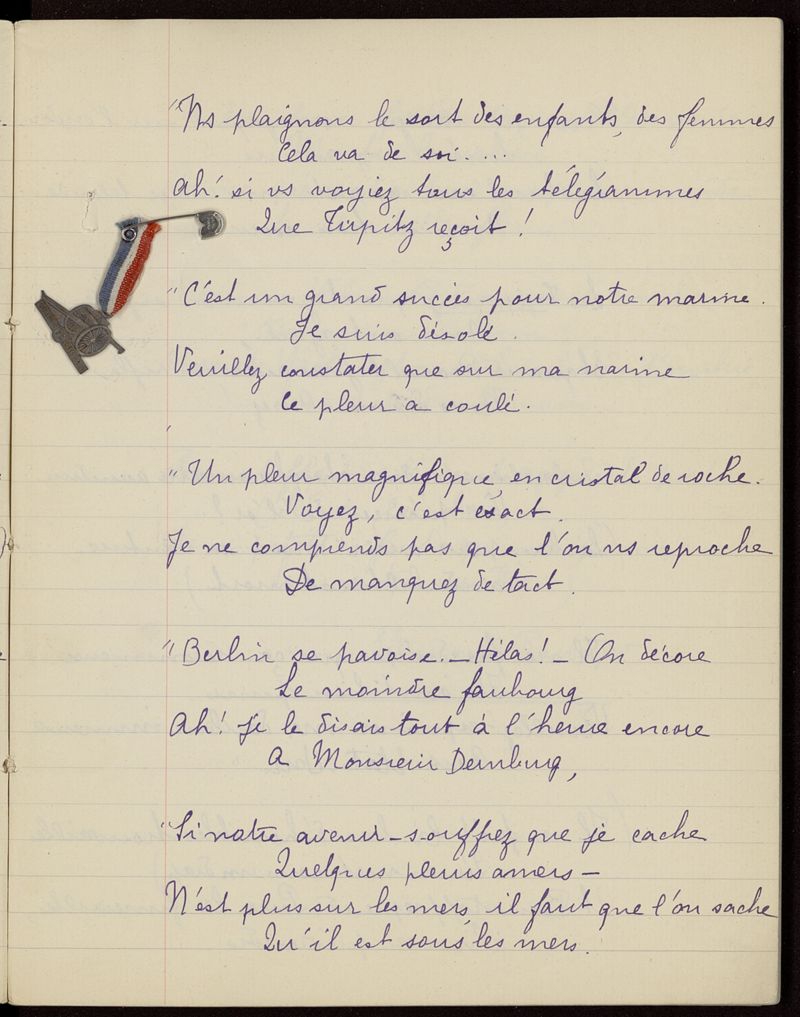 "Ns plaignons le sort des enfants, des femmes
Cela va de soi....
Ah! si vs voyiez tous les télégrammes
Que Tirpitz reçoit!
"C'est un grand succès pour notre marine.
Je suis désolé.
Veuillez constater que sur ma narine
Ce pleur a coulé.
"Un pleur magnifique, en cristal de roche.
Voyez, c'est exact.
Je ne comprends pas que l'on ns reproche
De manquez de tact.
"Berlin se pavoise. – Hélas! – On décore
Le moindre faubourg
Ah! Je le disais tout à l'heure encore
A Monsieur Dernburg,
"Si notre avenir – souffrez que je cache
Quelques pleurs amers –
N'est plus sur les mers, il faut que l'on sache
Qu'il est sous les mers.